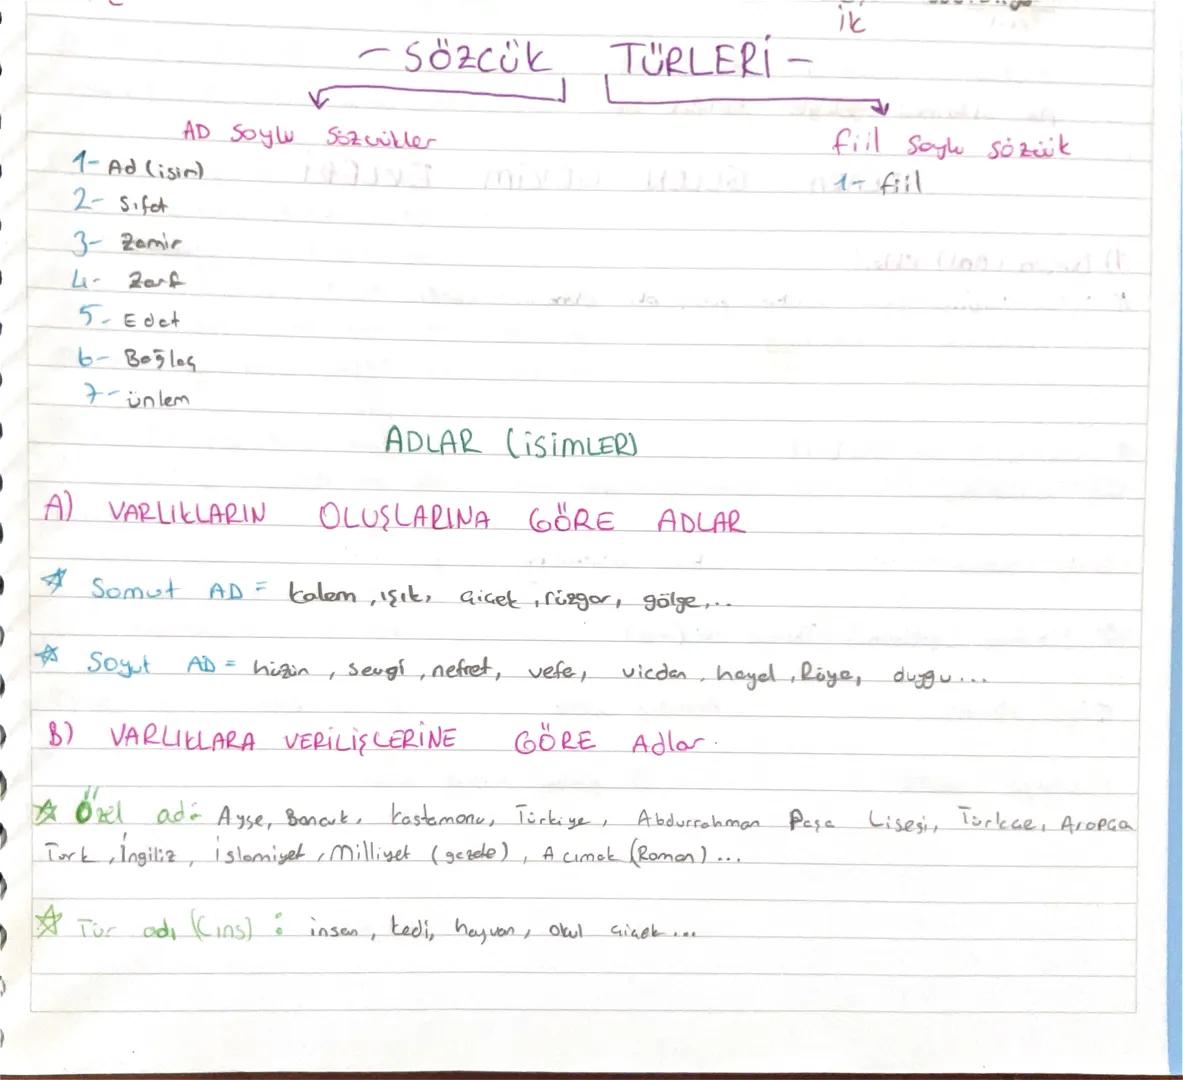 ik
- SÖZCÜK TÜRLERİ -
AD Soylu Sözcükler
fiil Soylu sözcük
1- Ad (isim)
1- fiil
2- Sıfat
3- Zamir
4- Zarf
5- Edat
6- Bağlaç
7- ünlem
ADLAR (isimLER)
A) VARLIKLARIN OLUŞLARINA GÖRE ADLAR
Somut AD = kalem, ışık, çiçek, rüzgar, gölge,...
Soyut AD = hüzün, sevgi, nefret, vefa, vicdan, hayal, Rüya, duygu...
B) VARLIKLARA VERİLİŞLERİNE GÖRE Adlar.
Özel ad: Ayşe, Boncuk, kastamonu, Türkiye, Abdurrahman Paşa Lisesi, Türkçe, Arapça
Türk, İngiliz, islamiyet, Milliyet (gazete), Acımak (Roman)...
Tür adı (Cins) : insan, kedi, hayvan, okul çiçek...